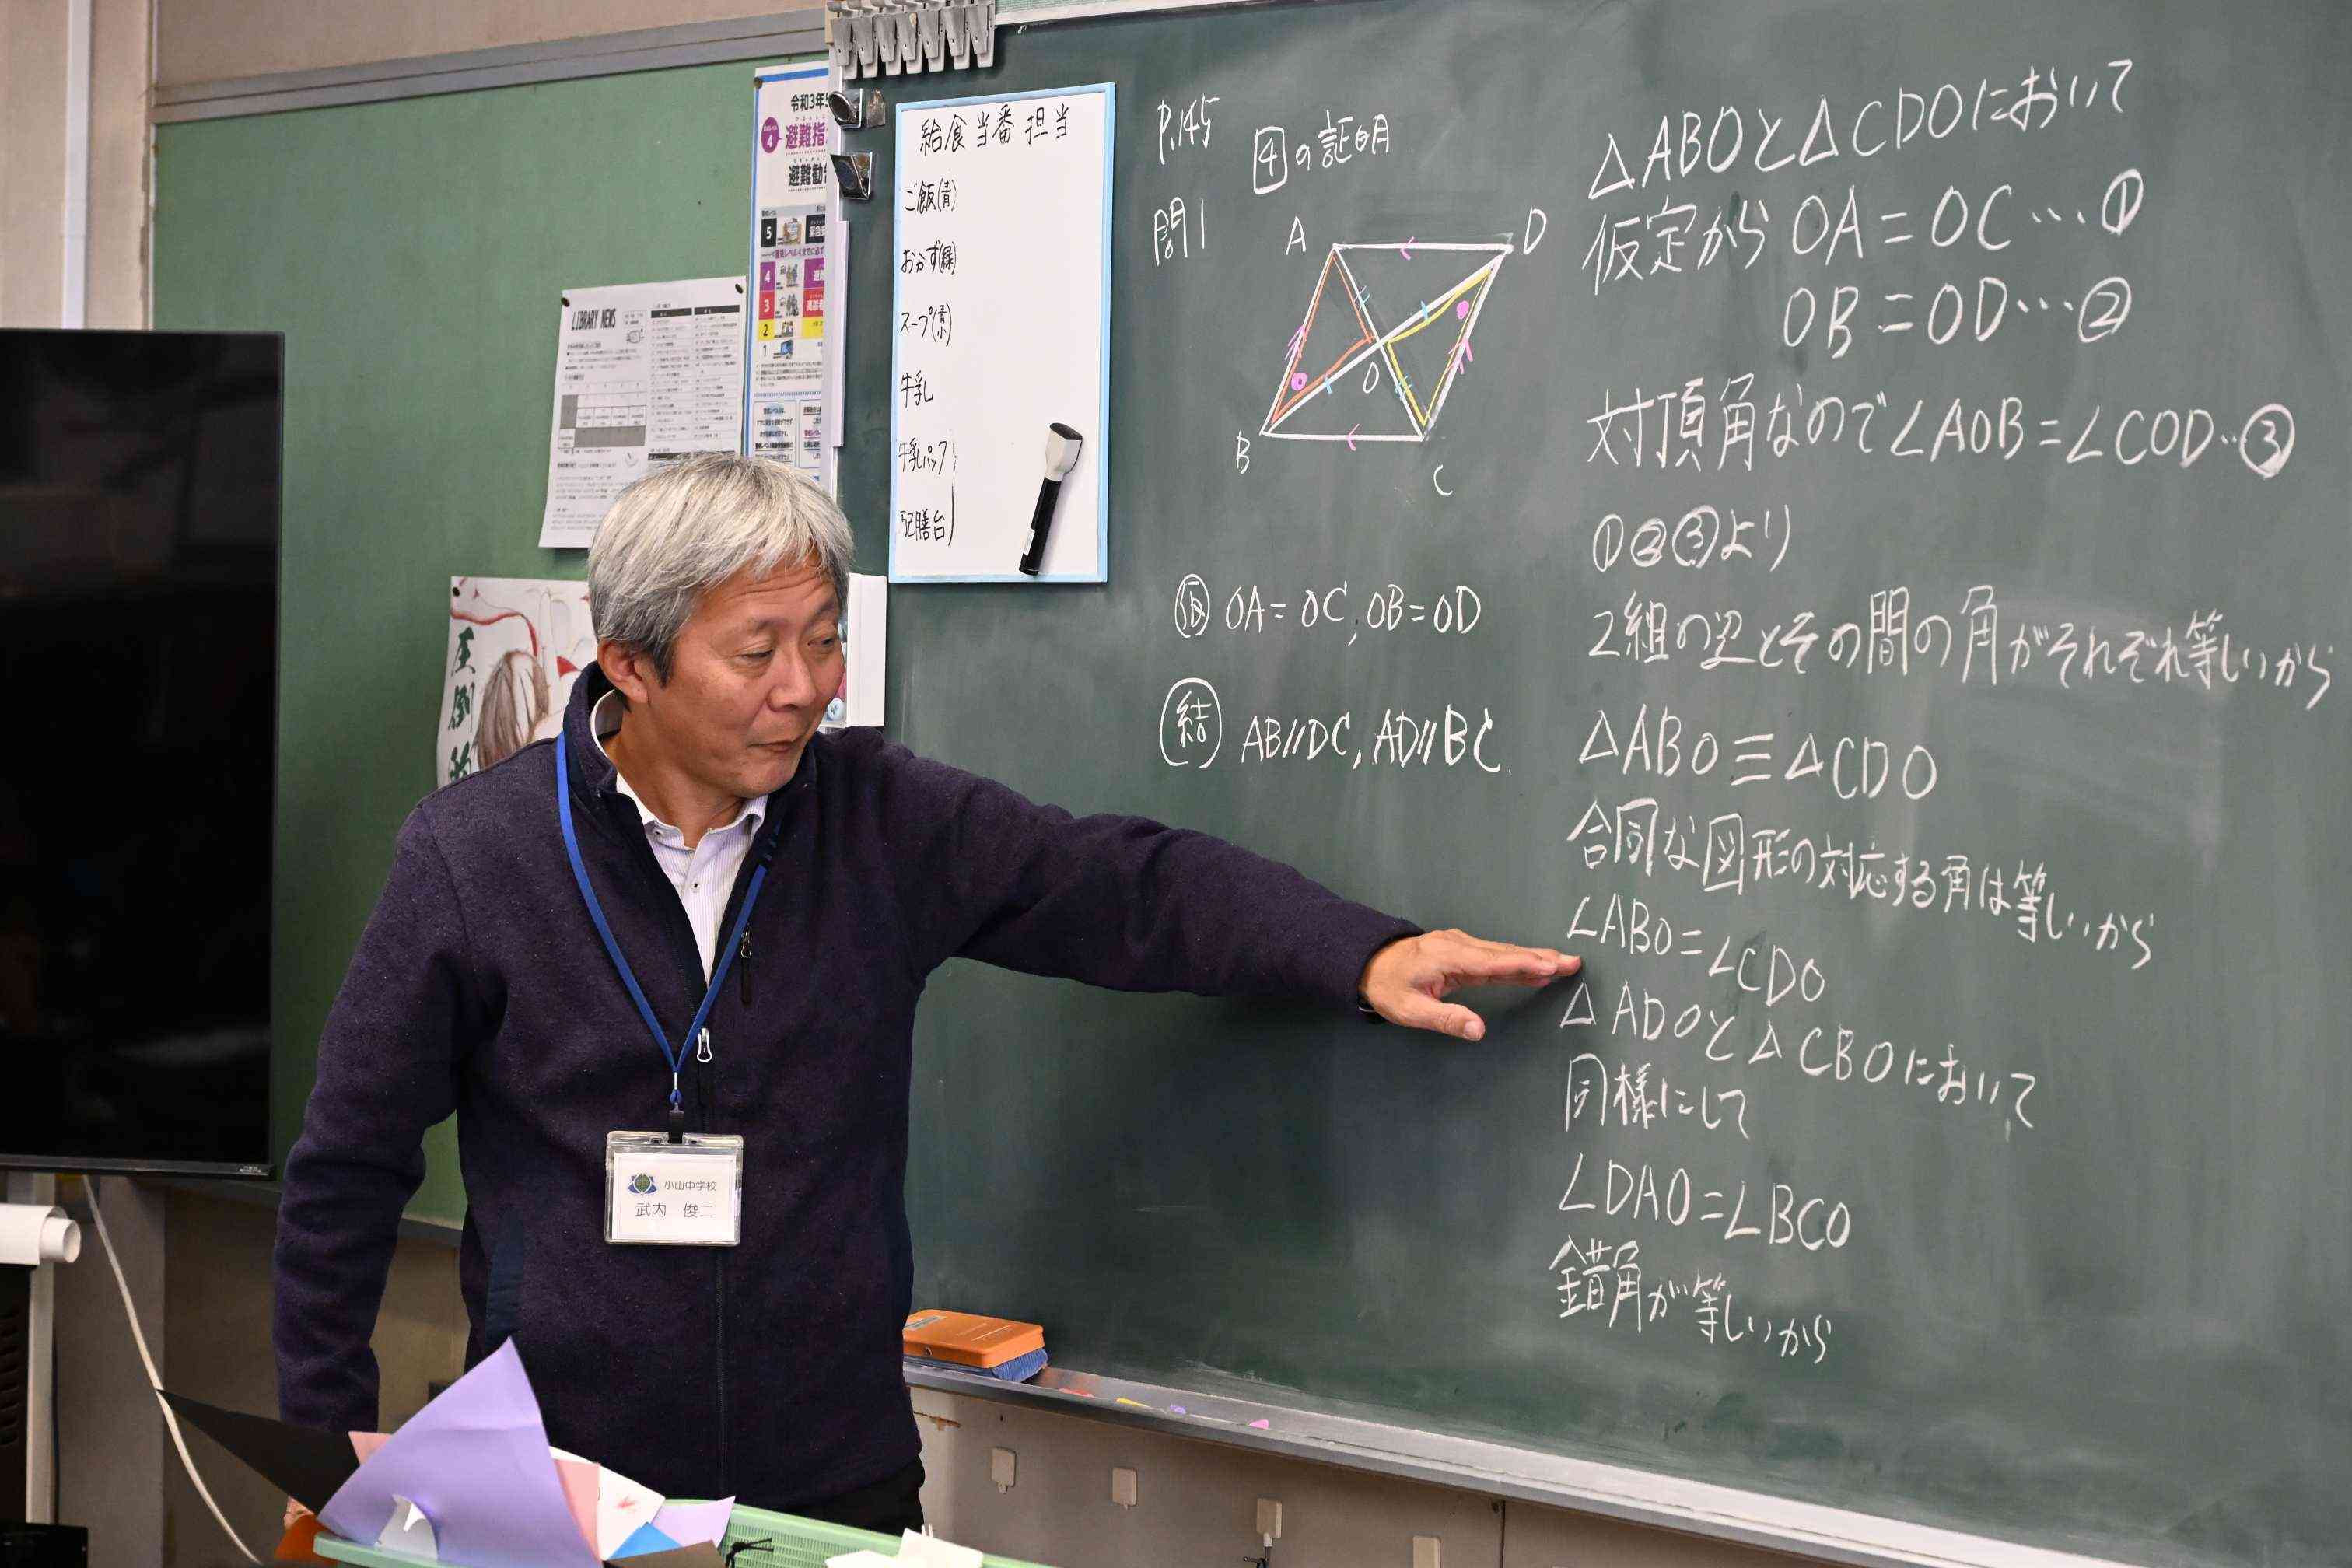 令和3年5
4
避難指
避難勧
5
4
3
2
1
LIBRARY NEWS
圧倒
給食当番担当
ご飯(青)
おかず(緑)
スープ(黄)
牛乳
牛乳パック
配膳台
P.145
問1
4の証明
A
D
O
B
C
仮 OA=OC, OB=OD
結 AB//DC, AD//BC.
△ABOと△CDOにおいて
仮定から OA=OC…①
OB=OD…②
対頂角なので∠AOB=∠COD…③
①②③より
2組の辺とその間の角がそれぞれ等しいから
△ABO≡△CDO
合同な図形の対応する角は等しいから
∠ABO=∠CDO
△ADOと△CBOにおいて
同様にして
∠DAO=∠BCO
錯角が等しいから
小山中学校
武内 俊二